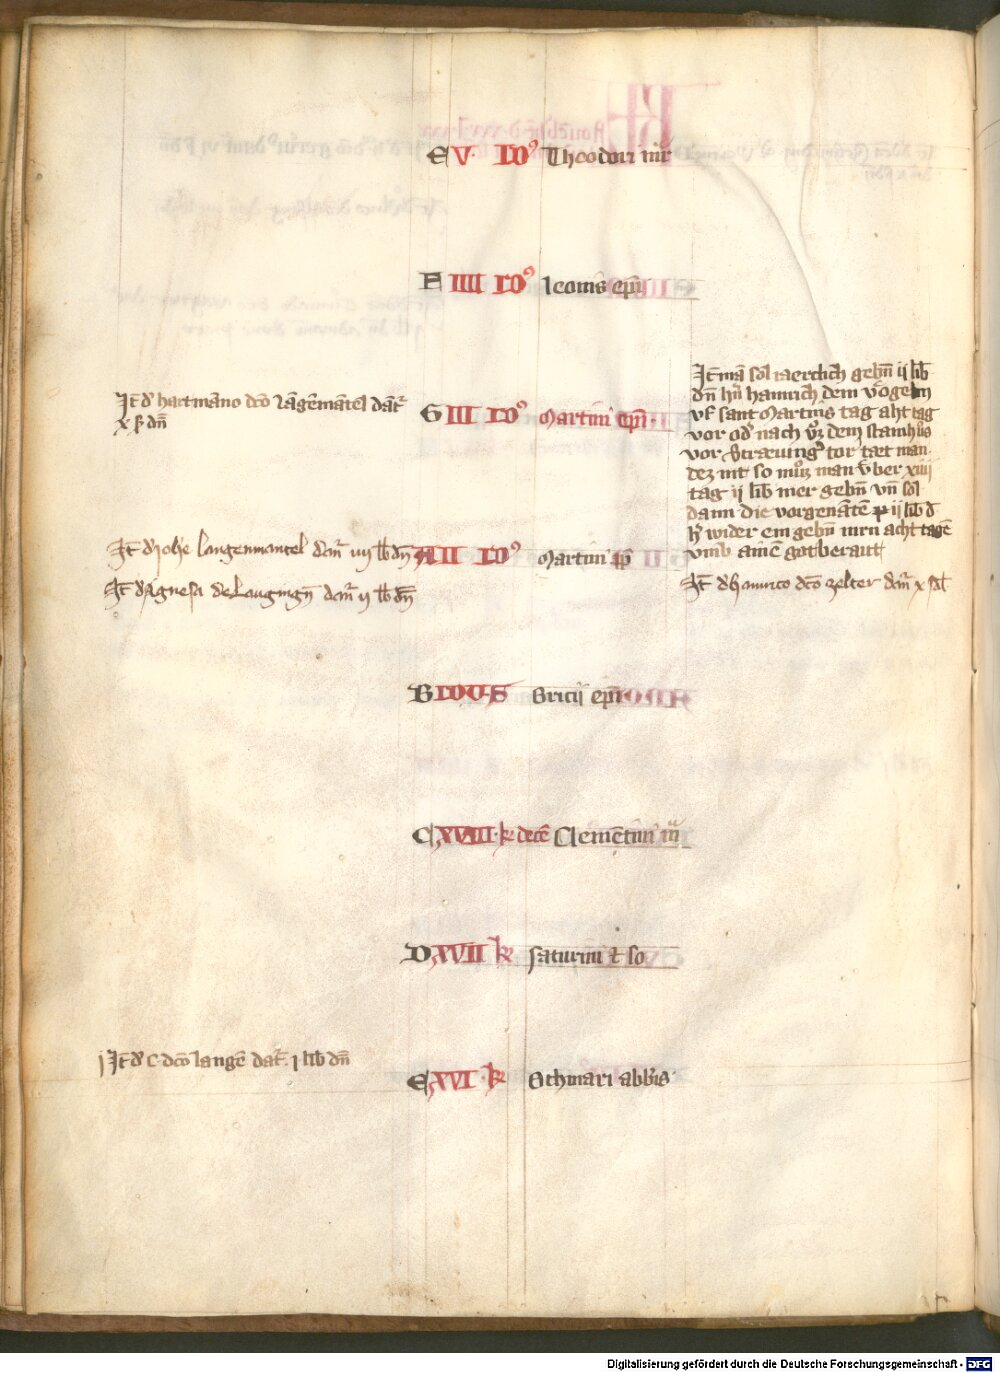 E V. ID⁹ Theodori mr̄
F IIII ID⁹ Leonis ep̄i
Jt̄ d' hartmāno dc̄o Lāgēmātel dat̄
x ß dn̄
G III ID⁹ Martini ep̄i.
Jt̄ mā sol iaerclich gebn̄ ij lib
dn̄ hn̄ hainrich dem vögelin
vf sant Martins tag aht tag
vor od' nach vz dem stainhus
tor taet man
dez nit so muz man v̈ber xiiij
tag ij lib mer gebn̄ vn̄ sol
dann die vorgenātē ij lib d
h' wider ein gebn̄ inrn acht tagē
vmb ainē gotberait
Jt̄ d' johe Langenmantel dat̄ iiij lb dn̄
A II ID⁹ Martini pp̄
Jt̄ d' Agnesa de Laugingn̄ dat̄ ij lb dn̄
Jt̄ d' hainrico dc̄o zelter dat̄ x
B IDUS Bricij ep̄i
C XVIII. kł decē Clementini mr̄
D XVII kł Saturini et so
j Jt̄ d' C dc̄o langē dat̄. j lib dn̄
E XVI. kł Othmari abb̄is
Digitalisierung gefördert durch die Deutsche Forschungsgemeinschaft - DFG